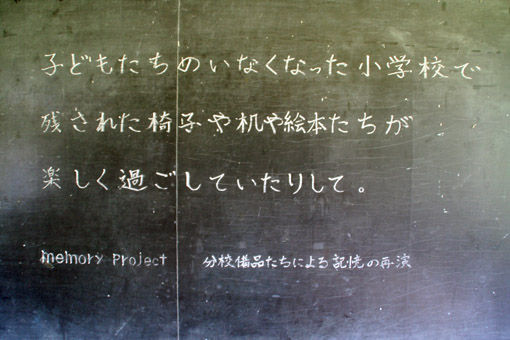 子どもたちのいなくなった小学校で
残された椅子や机や絵本たちが
楽しく過ごしていたりして。
memory project 分校備品たちによる記憶の再演